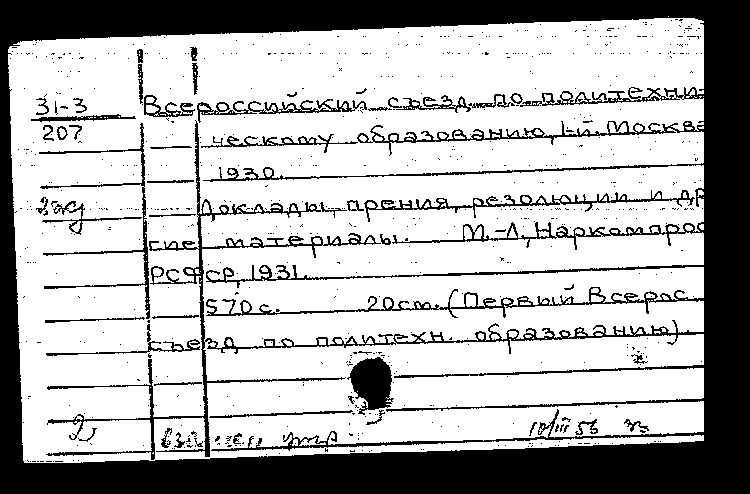 31-3 Всероссийский съезд по политехни-
207 ческому образованию, I-й. Москва
1930.
Доклады, прения, резолюции и дру
гие материалы. М.-Л., Наркомпрос
РСФСР, 1931.
570 с. 20см. (Первый Всерос.
съезд по политехн. образованию).
2 10/III 56